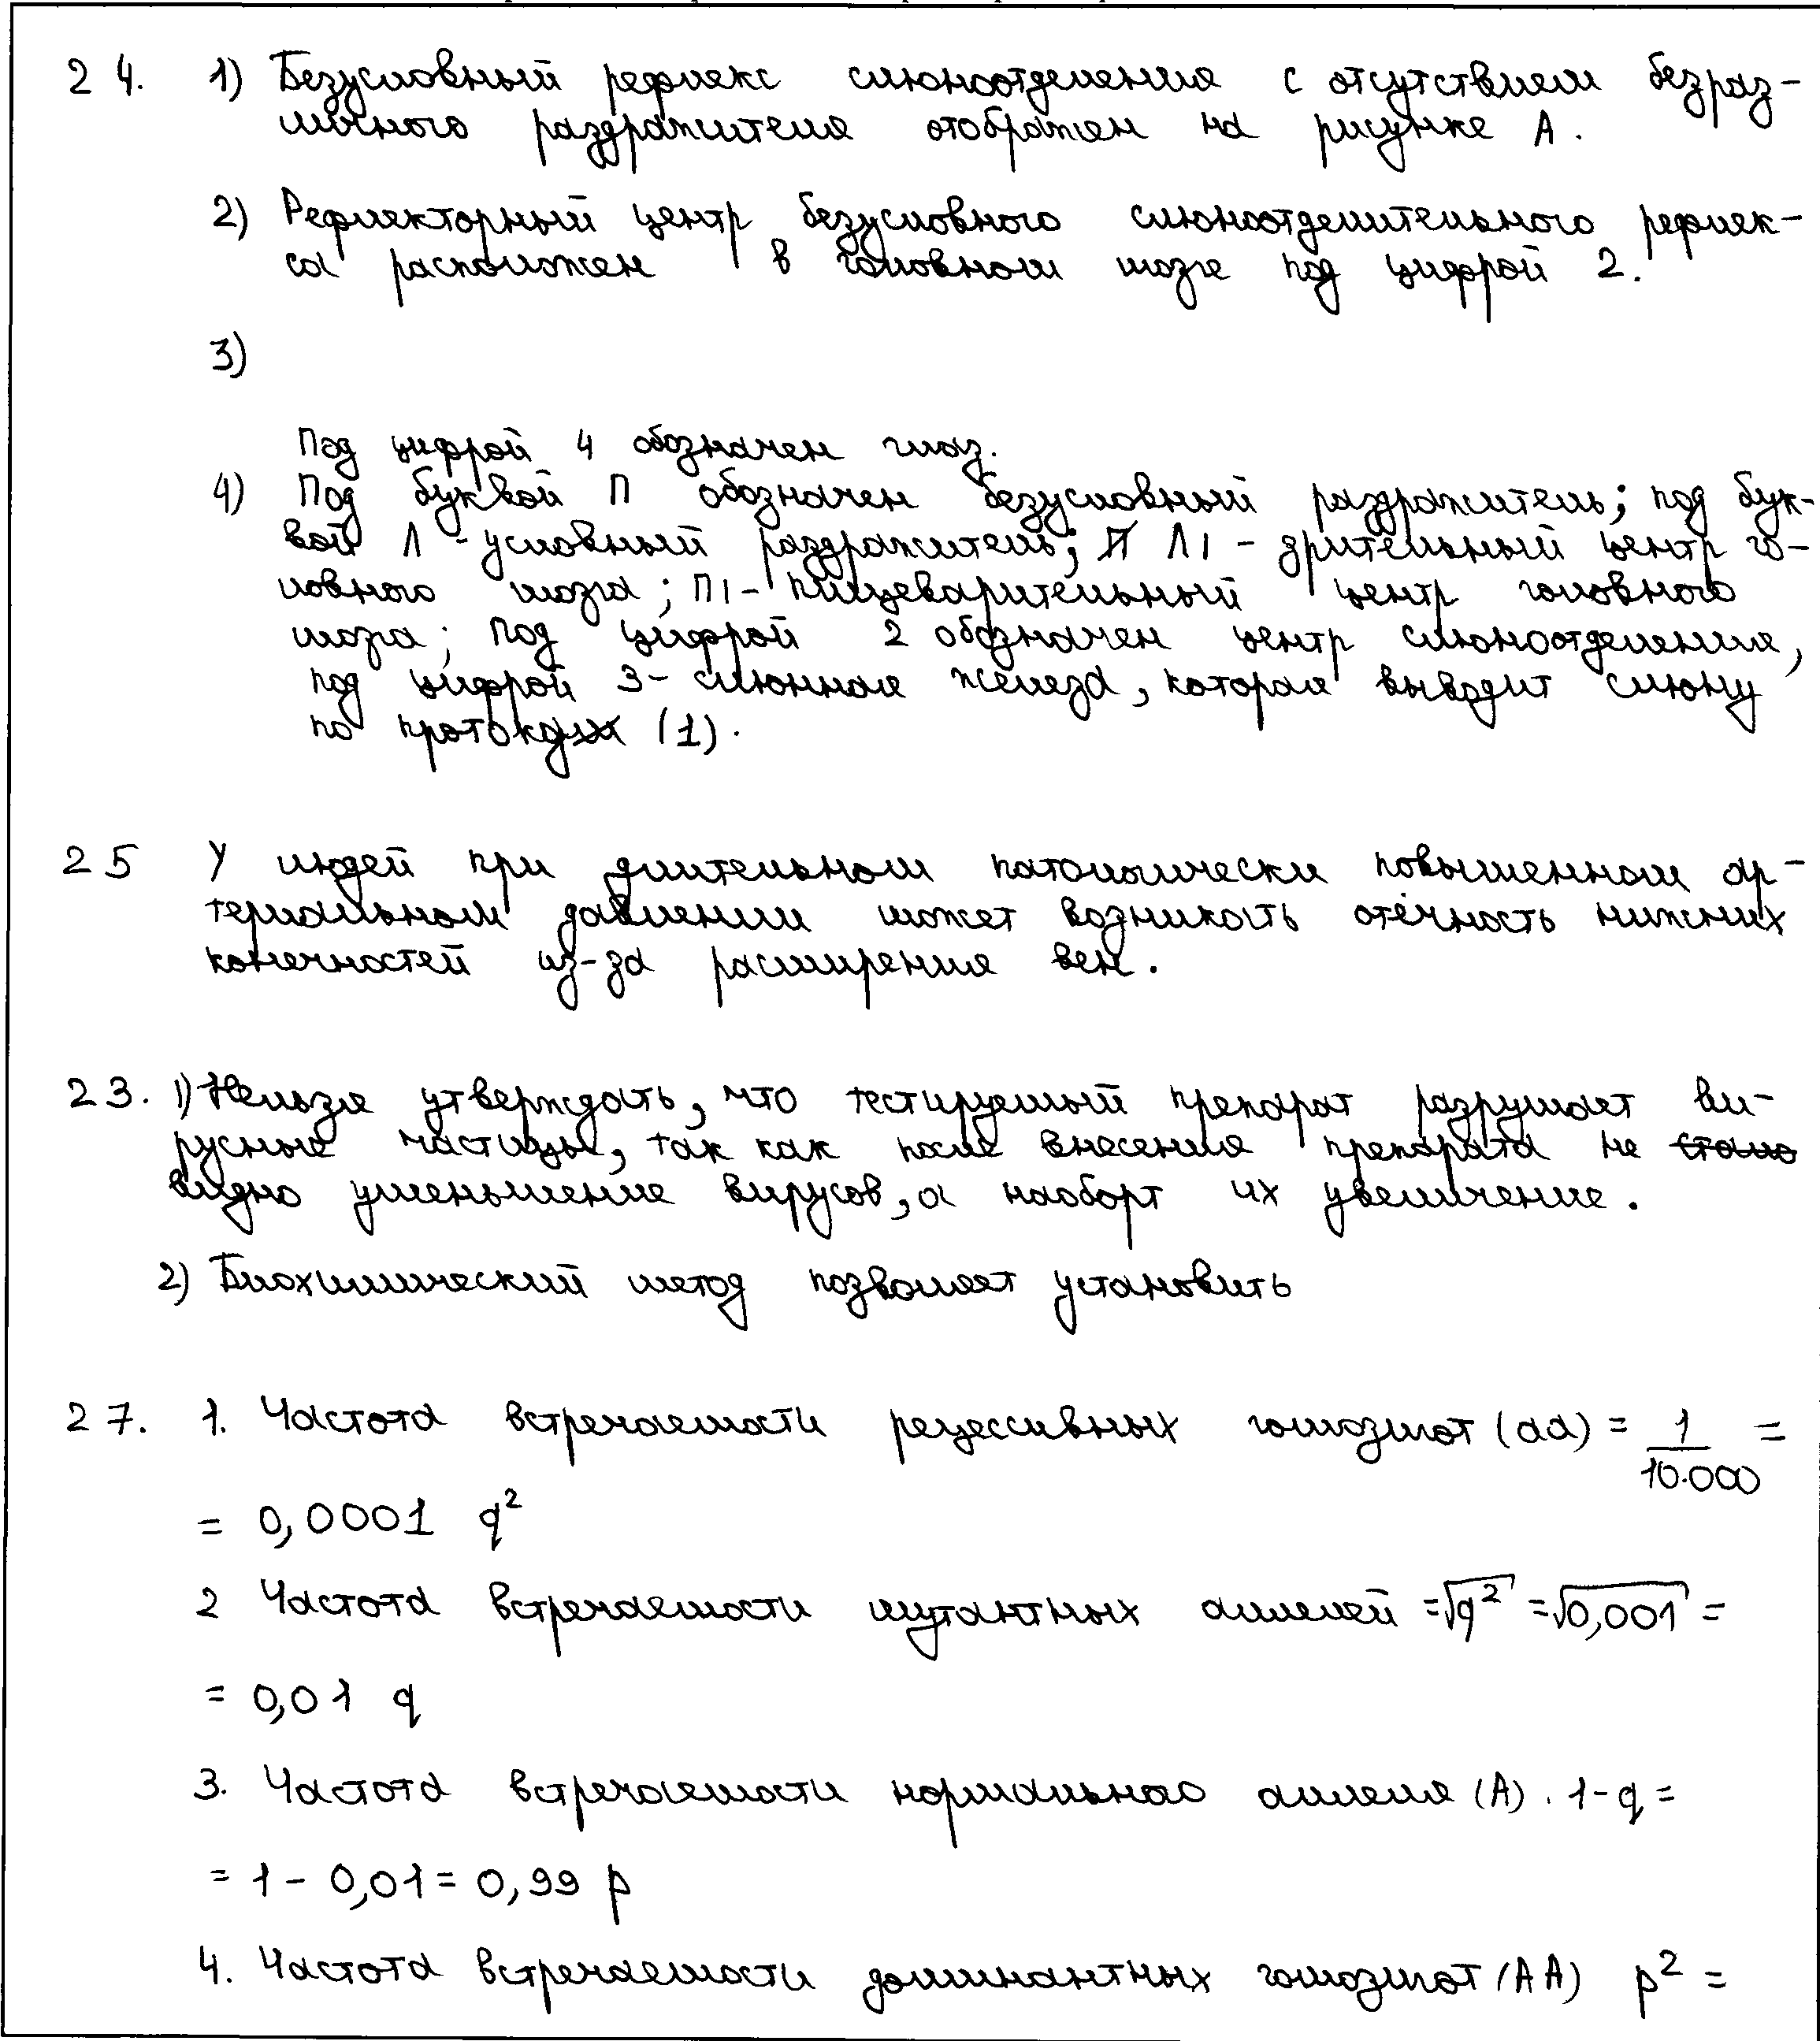 24. 1) Безусловный рефлекс слюноотделения с отсутствием безраз-
личного раздражителя отображен на рисунке А.
2) Рефлекторный центр безусловного слюноотделительного рефлек-
са расположен в головном мозге под цифрой 2.
3)
Под цифрой 4 обозначен глаз.
4) Под буквой П обозначен безусловный раздражитель; под бук-
вой Л - условный раздражитель; Л1 - зрительный центр го-
ловного мозга; П1 - пищеварительный центр головного
мозга; под цифрой 2 обозначен центр слюноотделения,
под цифрой 3 - слюнная железа, которая выводит слюну
по протоку (1).
25 У людей при длительном патологически повышенном ар-
териальном давлении может возникать отёчность нижних
конечностей из-за расширения вен.
23. 1) Нельзя утверждать, что тестируемый препарат разрушает ви-
русные частицы, так как после внесения препарата не стало
видно уменьшение вирусов, а наоборт их увеличение.
2) Биохимический метод позволяет установить
27. 1. Частота встречаемости рецессивных гомозигот (aa) = 1/10.000 =
= 0,0001 q²
2 Частота встречаемости мутантных аллелей = √q² = √0,001 =
= 0,01 q
3. Частота встречаемости нормального аллеля (А). 1 - q =
= 1 - 0,01 = 0,99 p
4. Частота встречаемости доминантных гомозигот (АА) p² =